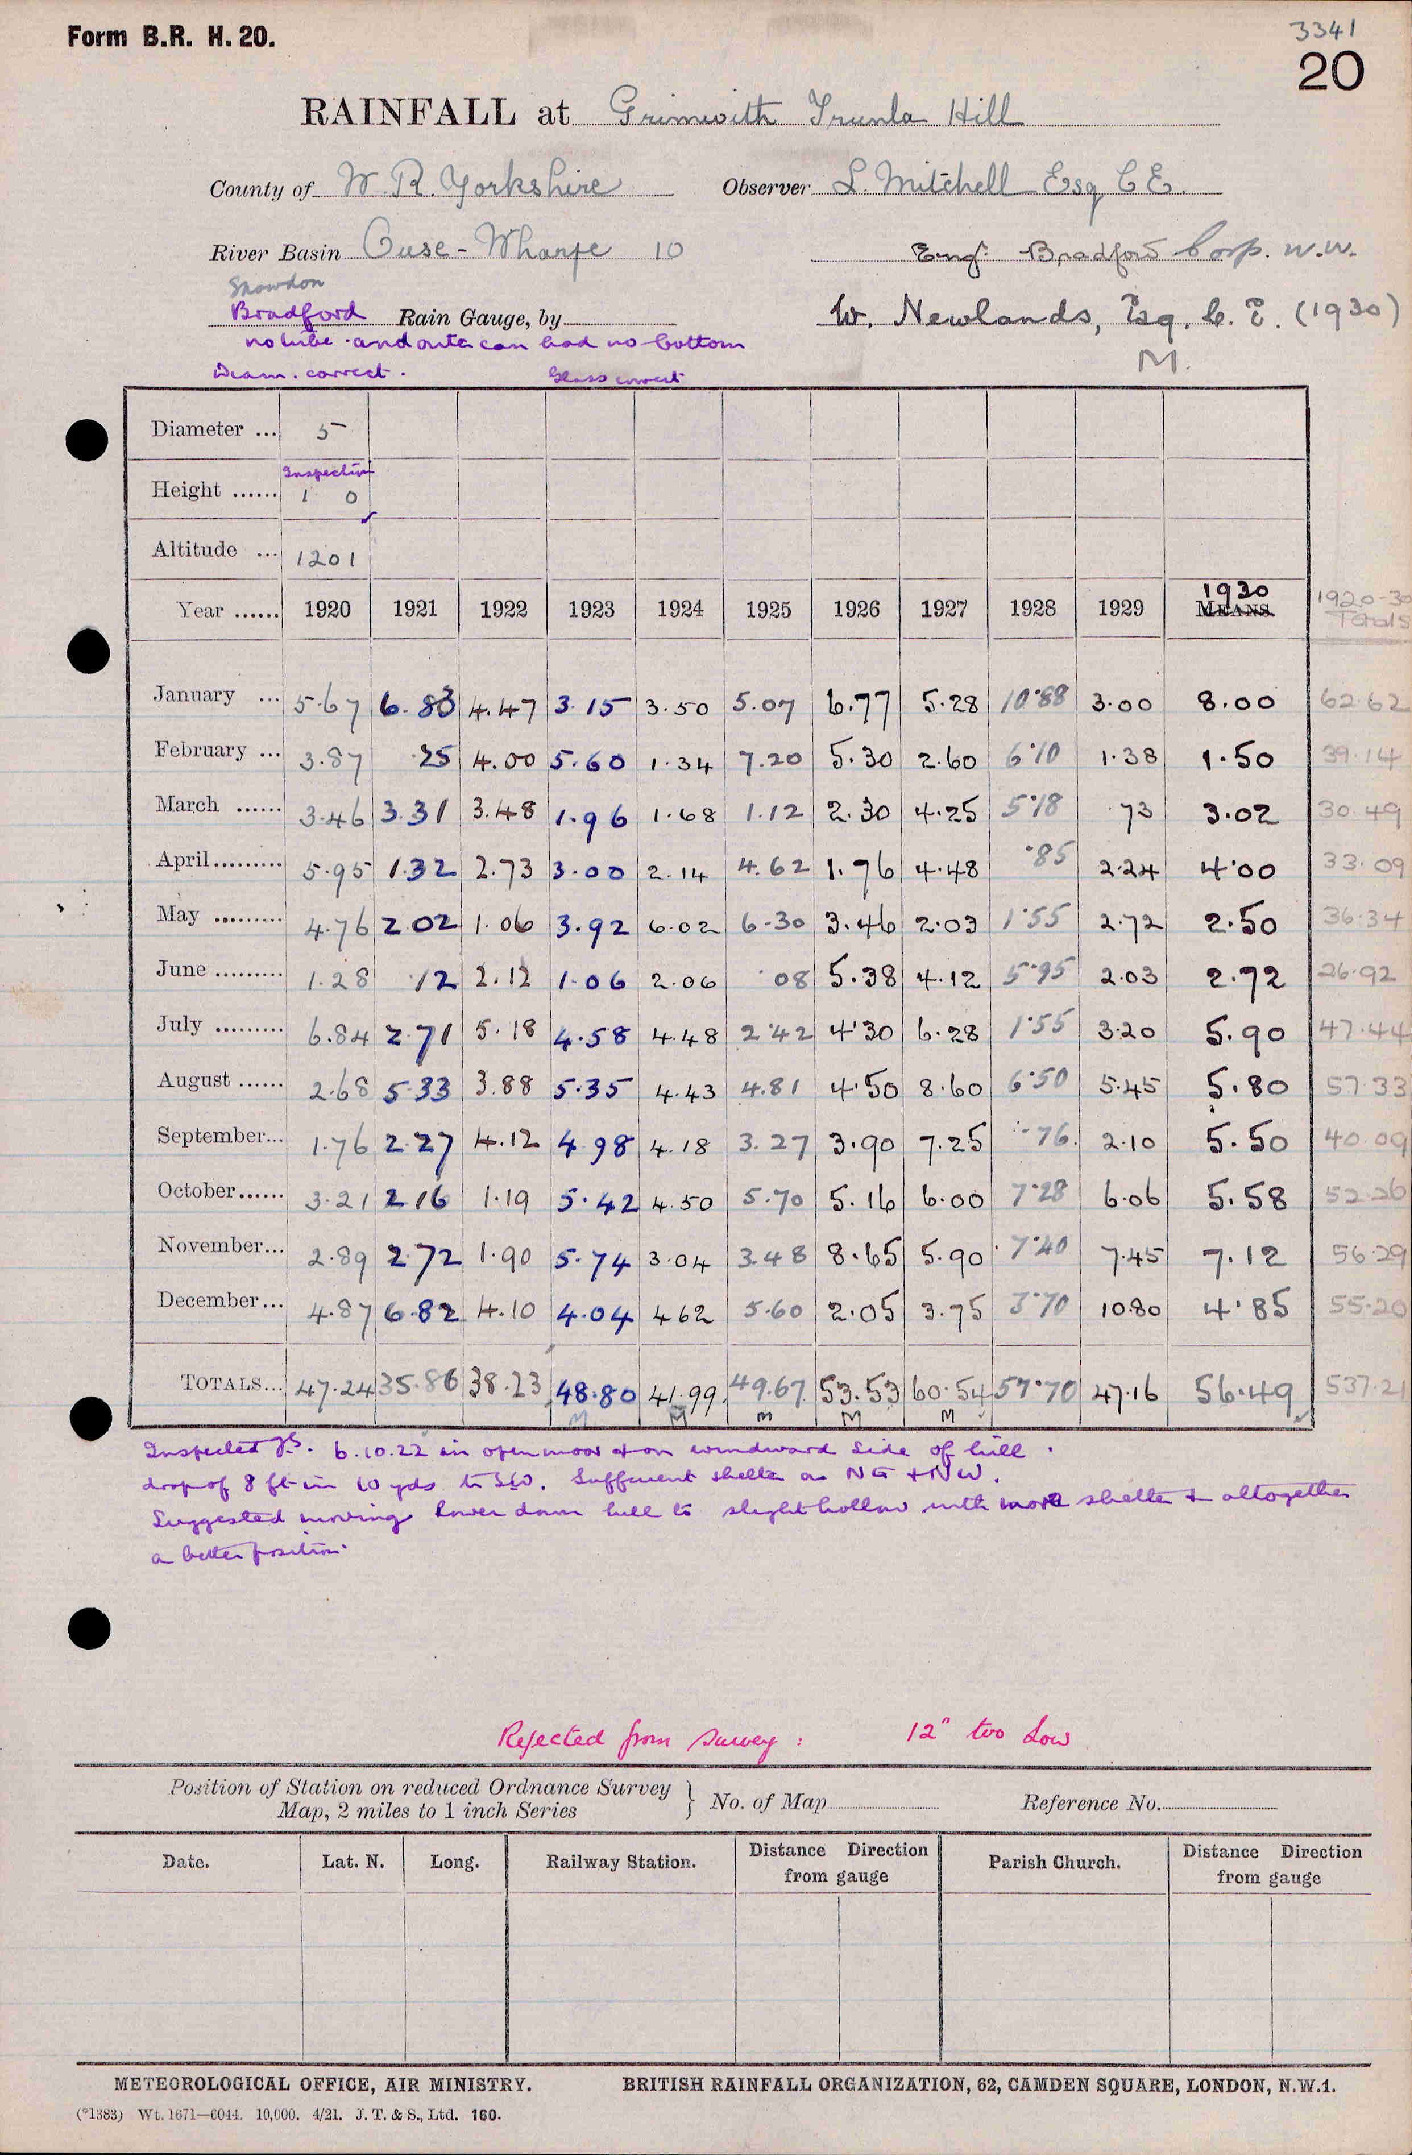 Form B.R. H. 20.
3341
20
RAINFALL at Grimwith Trunla Hill
County of W. R. Yorkshire Observer L. Mitchell Esq C E.
River Basin Ouse - Wharfe 10 Engr. Bradford Corp. W.W.
Snowdon
Bradford Rain Gauge, by W. Newlands, Esq. C. E. (1930)
no tube and outer can had no bottom M.
Diam. correct. Glass correct
Diameter ... 5
Inspection
Height ...... 1 0
Altitude ... 1201
Year ...... 1920 1921 1922 1923 1924 1925 1926 1927 1928 1929 1930 MEANS 1920-30 Totals
January ... 5.67 6.83 4.47 3.15 3.50 5.07 6.77 5.28 10.88 3.00 8.00 62.62
February ... 3.87 .25 4.00 5.60 1.34 7.20 5.30 2.60 6.10 1.38 1.50 39.14
March ...... 3.46 3.31 3.48 1.96 1.68 1.12 2.30 4.25 5.18 73 3.02 30.49
April ......... 5.95 1.32 2.73 3.00 2.14 4.62 1.76 4.48 .85 2.24 4.00 33.09
May ......... 4.76 2.02 1.06 3.92 6.02 6.30 3.46 2.03 1.55 2.72 2.50 36.34
June ......... 1.28 .12 2.12 1.06 2.06 .08 5.38 4.12 5.95 2.03 2.72 26.92
July ......... 6.84 2.71 5.18 4.58 4.48 2.42 4.30 6.28 1.55 3.20 5.90 47.44
August ...... 2.68 5.33 3.88 5.35 4.43 4.81 4.50 8.60 6.50 5.45 5.80 57.33
September... 1.76 2.27 4.12 4.98 4.18 3.27 3.90 7.25 .76 2.10 5.50 40.09
October...... 3.21 2.16 1.19 5.42 4.50 5.70 5.16 6.00 7.28 6.06 5.58 52.26
November... 2.89 2.72 1.90 5.74 3.04 3.48 8.65 5.90 7.40 7.45 7.12 56.29
December... 4.87 6.82 4.10 4.04 4.62 5.60 2.05 3.75 3.70 10.80 4.85 55.20
TOTALS... 47.24 35.86 38.23 48.80 41.99 49.67 53.53 60.54 57.70 47.16 56.49 537.21
M M M M M
Inspected 6.10.22 in open moor & on windward side of hill.
drop of 8 ft in 10 yds to SW. Sufficient shelter on NE & NW.
Suggested moving lower down hill to slight hollow with more shelter & altogether
a better position.
Rejected from survey: 12" too Low
Position of Station on reduced Ordnance Survey
Map, 2 miles to 1 inch Series } No. of Map Reference No.
Date. Lat. N. Long. Railway Station. Distance Direction from gauge Parish Church. Distance Direction from gauge
METEOROLOGICAL OFFICE, AIR MINISTRY. BRITISH RAINFALL ORGANIZATION, 62, CAMDEN SQUARE, LONDON, N.W.1.
(*1383) Wt. 1671—6044. 10,000. 4/21. J. T. & S., Ltd. 160.